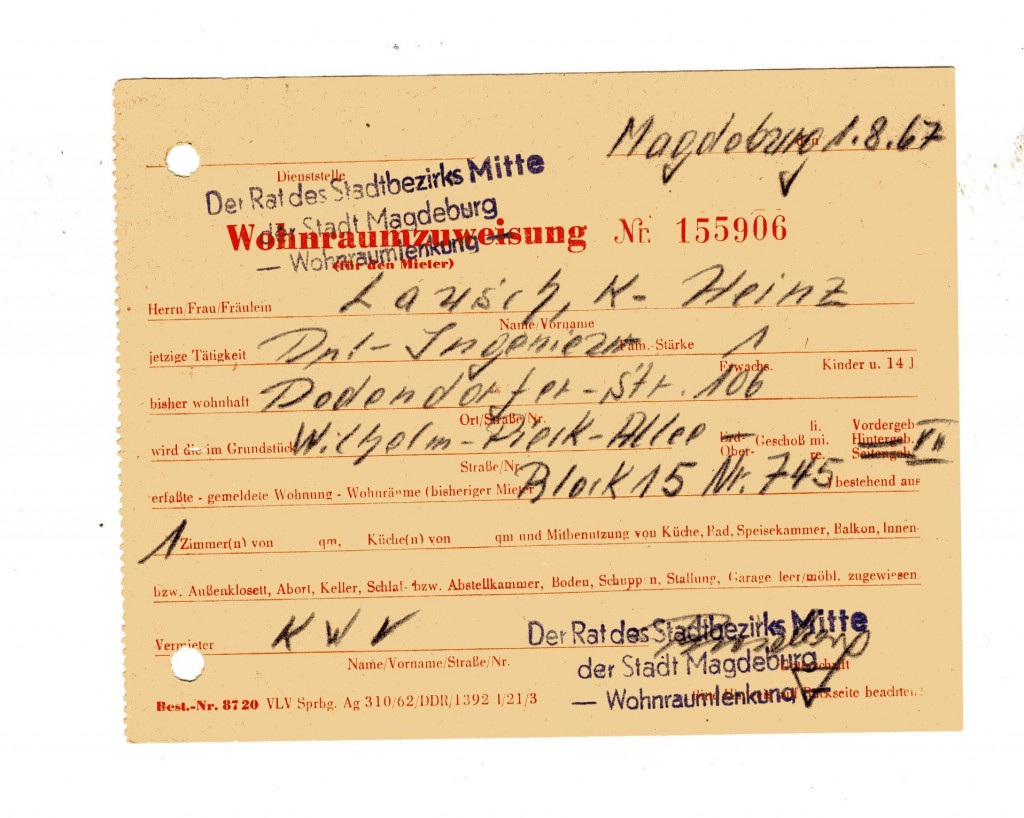 Magdeburg, den 1.8.67
Dienststelle
Der Rat des Stadtbezirks Mitte
der Stadt Magdeburg
— Wohnraumlenkung —
Wohnraumzuweisung Nr. 155906
(für den Mieter)
Herrn/Frau/Fräulein Lausch, K- Heinz
Name/Vorname
jetzige Tätigkeit Dpl-Ingenieur Fam.-Stärke 1 /
Erwachs. Kinder u. 14 J
bisher wohnhaft Dodendorfer-Str. 106
Ort/Straße/Nr.
wird die im Grundstück Wilhelm-Pieck-Allee Erd- Ober- Geschoß li. mi. re. Vordergeb Hintergeb. Seitengeb. VII
Straße/Nr.
erfaßte - gemeldete Wohnung - Wohnräume (bisheriger Mieter Block 15 Nr. 745 ) bestehend aus
1 Zimmer(n) von qm, Küche(n) von qm und Mitbenutzung von Küche, Bad, Speisekammer, Balkon, Innen-
bzw. Außenklosett, Abort, Keller, Schlaf- bzw. Abstellkammer, Boden, Schuppen, Stallung, Garage leer/möbl. zugewiesen.
Vermieter KWV
Name/Vorname/Straße/Nr.
Der Rat des Stadtbezirks Mitte
der Stadt Magdeburg
— Wohnraumlenkung —
Unterschrift
Rückseite beachten!
Best.-Nr. 8720 VLV Sprbg. Ag 310/62/DDR/1392 1/21/3